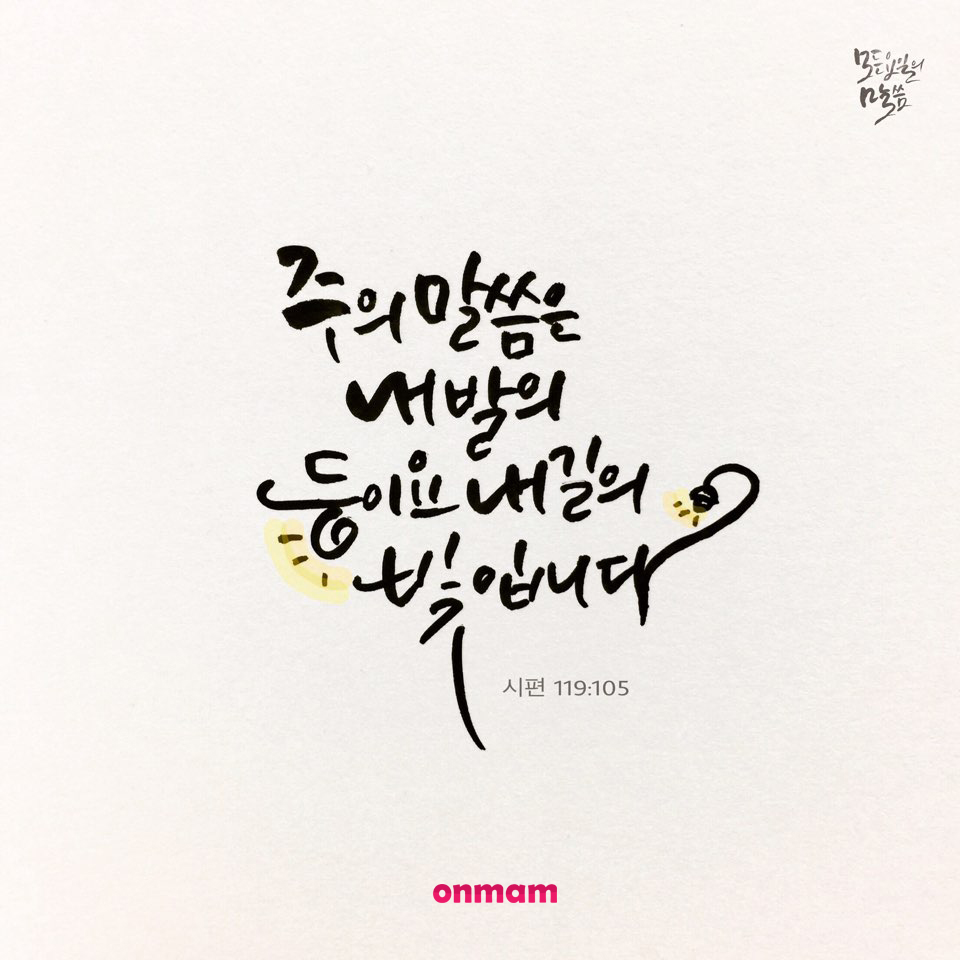 말씀
주의 말씀은
내 발의
등이요 내 길의
빛입니다
시편 119:105
onmam